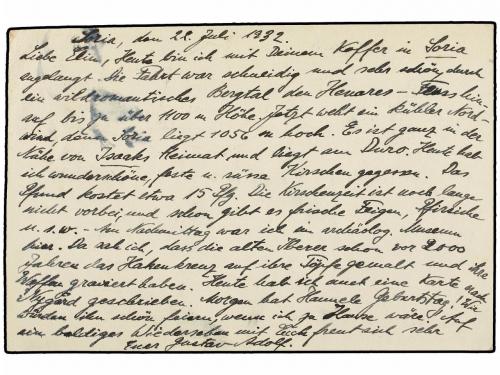 Soria, den 22. Juli 1932.
Liebe Elin, Heute bin ich mit Deinem Koffer in Soria
angelangt. Die Fahrt war schneidig und sehr schön, durch
ein wildromantisches Bergtal den Henares-Fluss hin-
auf bis zu über 1100 m Höhe. Jetzt weht ein kühler Nord-
wind, denn Soria liegt 1056 m hoch. Es ist ganz in der
Nähe von Isaaks Heimat und liegt am Duro. Heute hab
ich wunderschöne, feste u. süsse Kirschen gegessen. Das
Pfund kostet etwa 15 Pfg. Die Kirschenzeit ist noch lange
nicht vorbei, und schon gibt es frische Feigen, Pfirsiche
u.s.w. - Am Nachmittag war ich im archäolog. Museum
hier. Da sah ich, dass die alten Iberer schon vor 2000
Jahren das Hakenkreuz auf ihre Töpfe gemalt und ihre
Waffen graviert haben. Heute hab ich auch eine Karte nach
Nygård geschrieben. Morgen hat Hannele Geburtstag! Wir
würden ihn schön feiern, wenn ich zu Hause wäre! Auf
ein baldiges Wiedersehen mit Euch freut sich sehr
Euer Gustav Adolf.